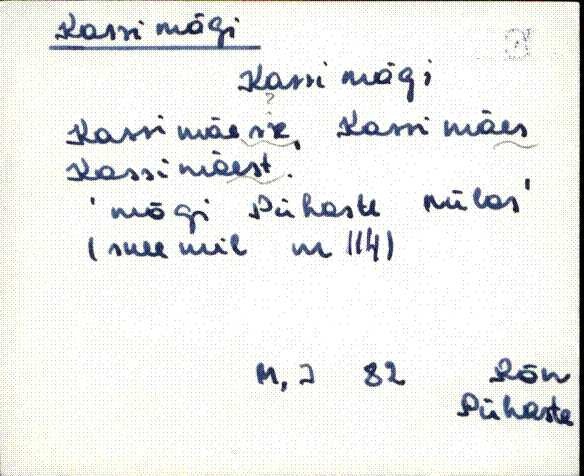 Kassi mägi
Kassi mägi
?
Kassi mäe sse, Kassi mäes
Kassi mäest.
'mägi Pühaste külas'
(suurmil nr 114)
M, J 82 Rõn
Pühaste